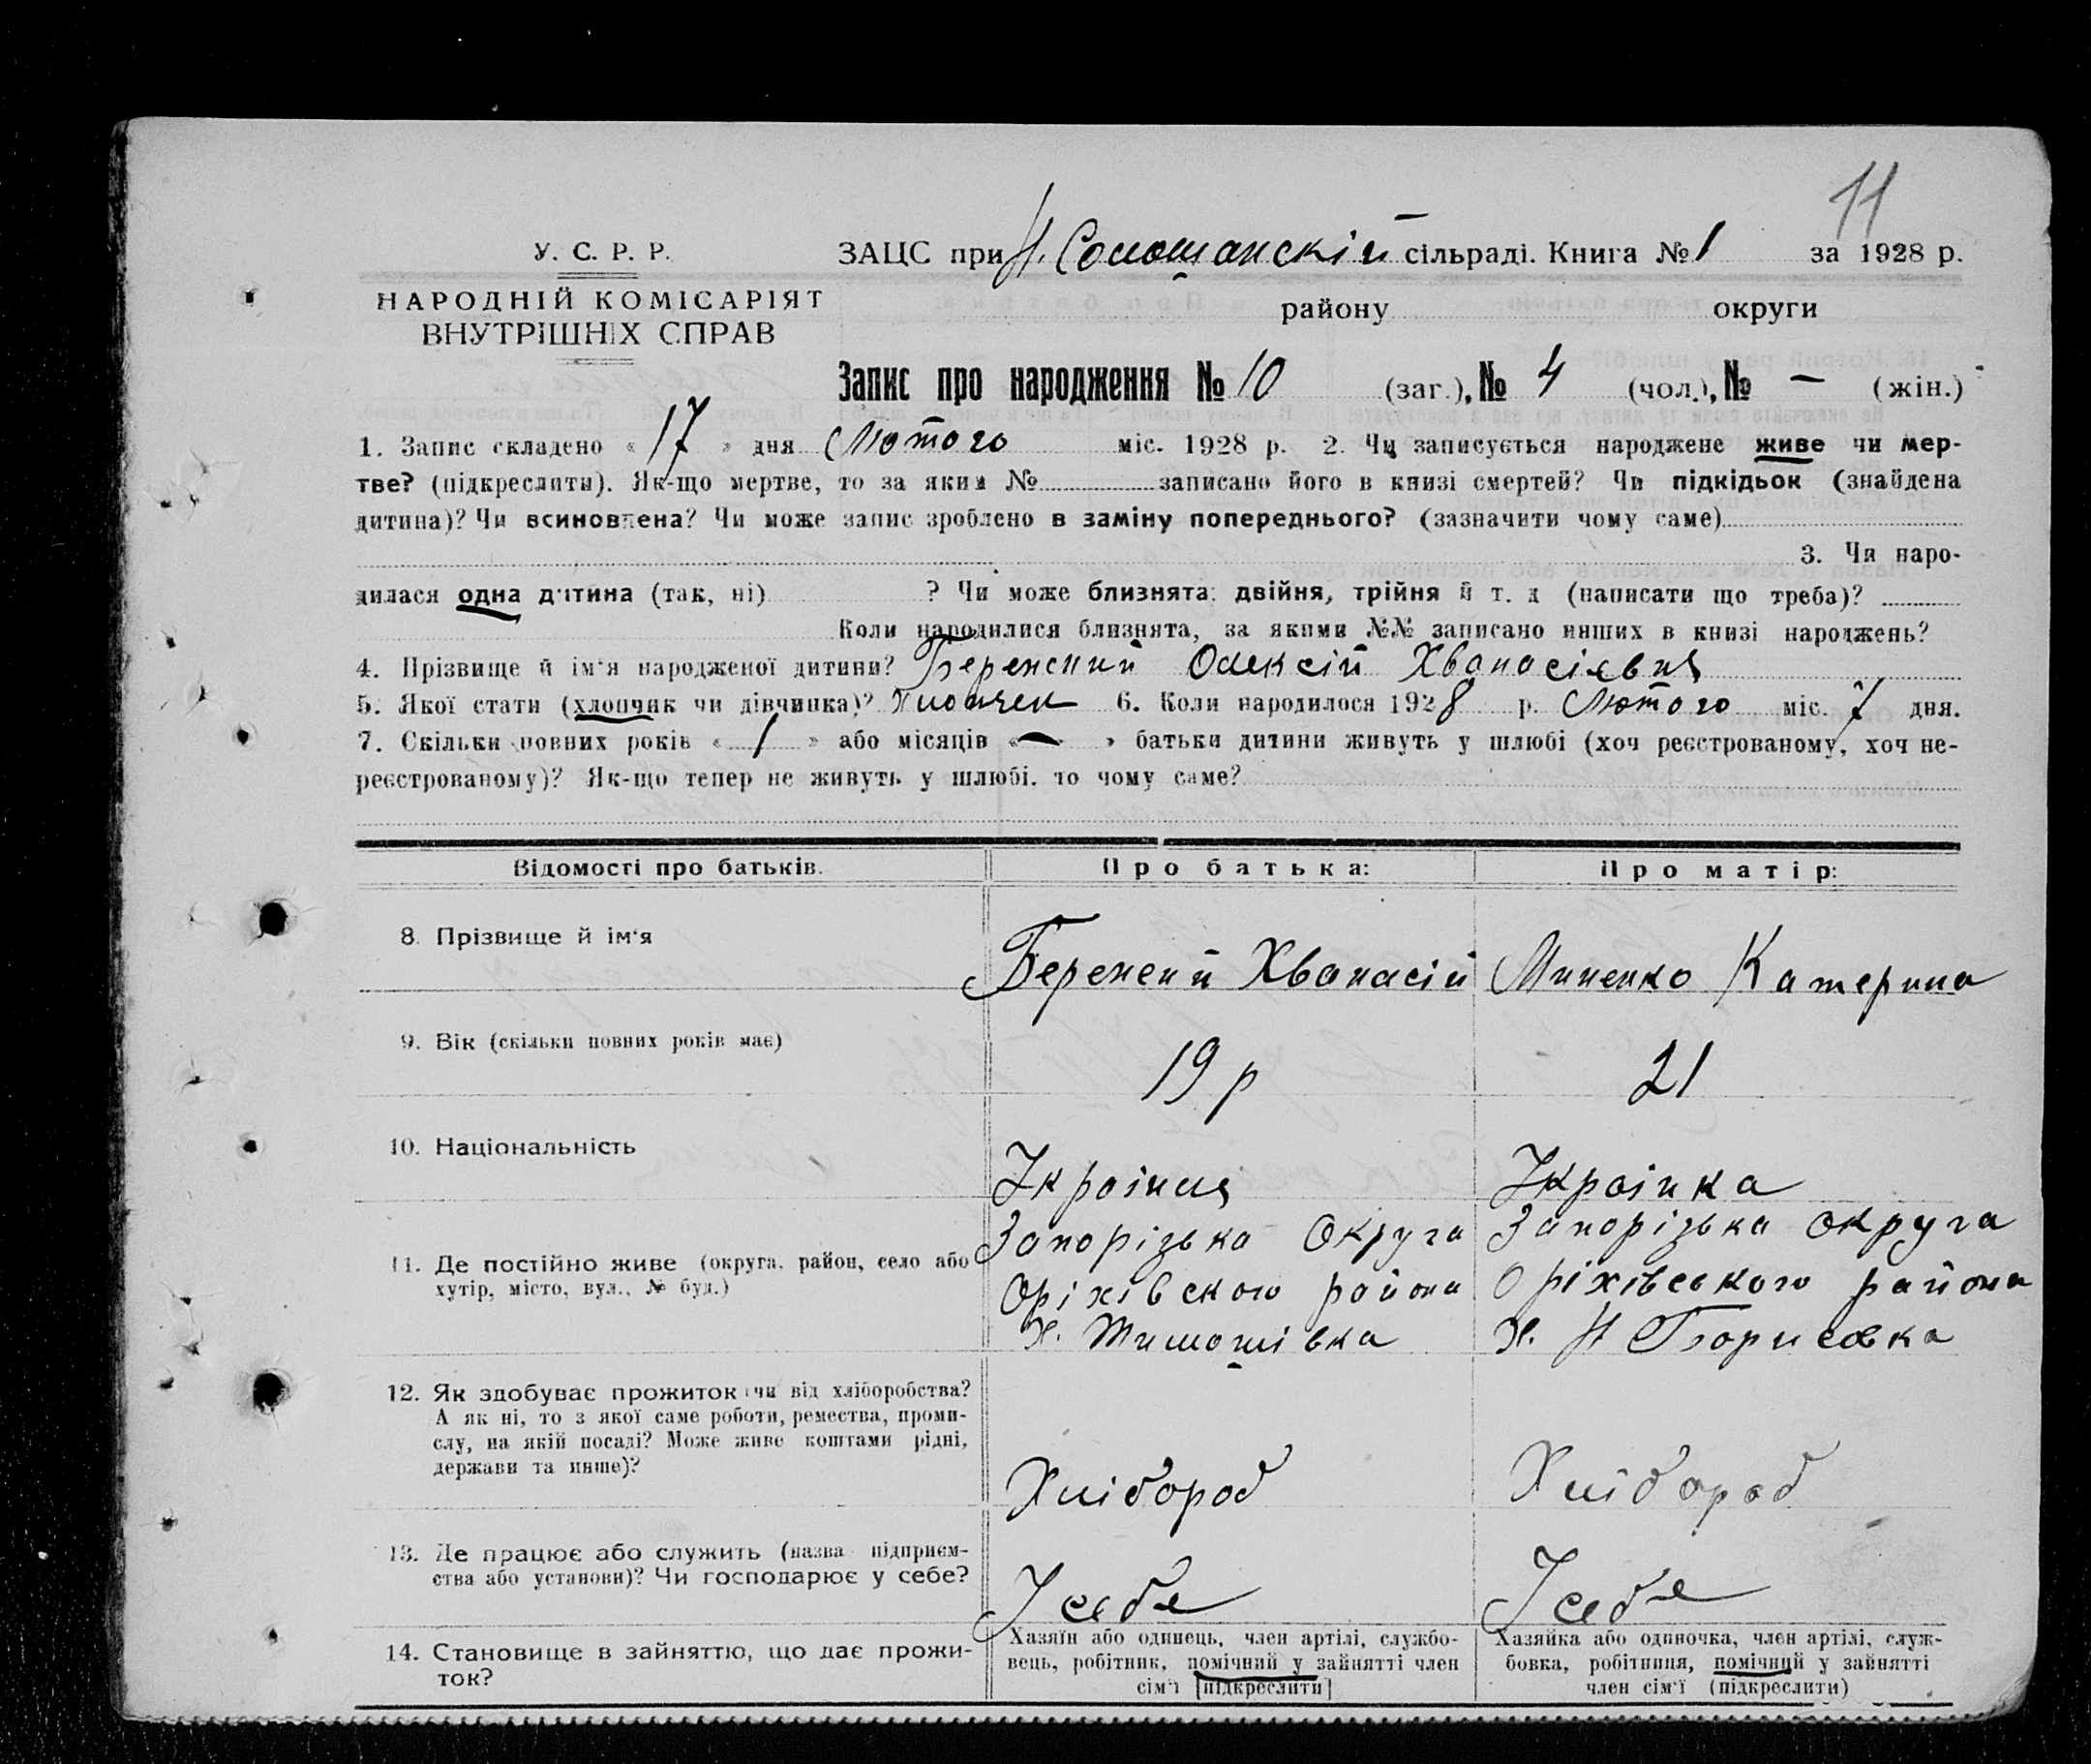 11
У. С. Р. Р.
ЗАЦС при Н. Солошанскій сільраді. Книга № 1 за 1928 р.
НАРОДНІЙ КОМІСАРІЯТ
ВНУТРІШНІХ СПРАВ
району округи
Запис про народження № 10 (заг.), № 4 (чол.), № – (жін.)
1. Запис складено « 17 » дня Лютого міс. 1928 р. 2. Чи записується народжене живе чи мер-
тве? (підкреслити). Як-що мертве, то за яким № записано його в книзі смертей? Чи підкідьок (знайдена
дитина)? Чи всиновлена? Чи може запис зроблено в заміну попереднього? (зазначити чому саме)
3. Чи наро-
дилася одна дитина (так, ні) ? Чи може близнята: двійня, трійня й т. д (написати що треба)?
Коли народилися близнята, за якими №№ записано инших в книзі народжень?
4. Прізвище й ім'я народженої дитини? Олексій Хванасієвич
5. Якої стати (хлопчик чи дівчинка)? Хлопчек 6. Коли народилося 1928 р. Лютого міс. 7 дня.
7. Скільки повних років « 1 » або місяців « – » батьки дитини живуть у шлюбі (хоч реєстрованому, хоч не-
реєстрованому)? Як-що тепер не живуть у шлюбі, то чому саме?
Відомості про батьків. Про батька: Про матір:
8. Прізвище й ім'я
Хванасій Миненко Катерина
9. Вік (скільки повних років має)
19 р 21
10. Національність
Українця Українка
11. Де постійно живе (округа, район, село або
хутір, місто, вул., № буд.)
Запорізька Округа Запорізька округа
Оріхівского района Оріхівського района
Х. Тимошівка Х. Н Борисовка
12. Як здобуває прожиток (чи від хліборобства?
А як ні, то з якої саме роботи, ремества, проми-
слу, на якій посаді? Може живе коштами рідні,
держави та инше)?
Хлібороб Хлібороб
13. Де працює або служить (назва підприєм-
ства або установи)? Чи господарює у себе?
У себе У себе
14. Становище в зайняттю, що дає прожи-
ток?
Хазяїн або одинець, член артілі, службо-
вець, робітник, помічний у зайнятті член
сім'ї [підкреслити]
Хазяйка або одиночка, член артілі, служ-
бовка, робітниця, помічний у зайнятті
член сім'ї (підкреслити)